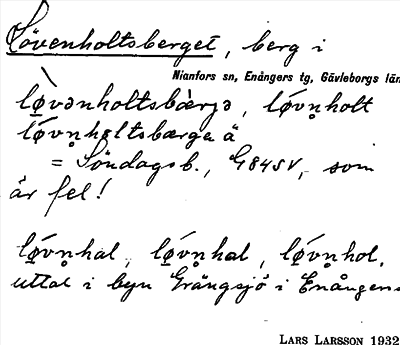 Lövenholtsberget, berg i
Nianfors sn, Enångers tg, Gävleborgs län
lø̱̀vənholtsbærjə, lǿ̱vn̥holt
lǿ̱vn̥hɐltsbærga ä
= Söndagsb., G84SV, som
är fel!
lǿ̱vn̥hal, lǿ̱vn̥hɐl, lǿ̱vn̥hol,
uttal i byn Grängsjö i Enångers
LARS LARSSON 1932